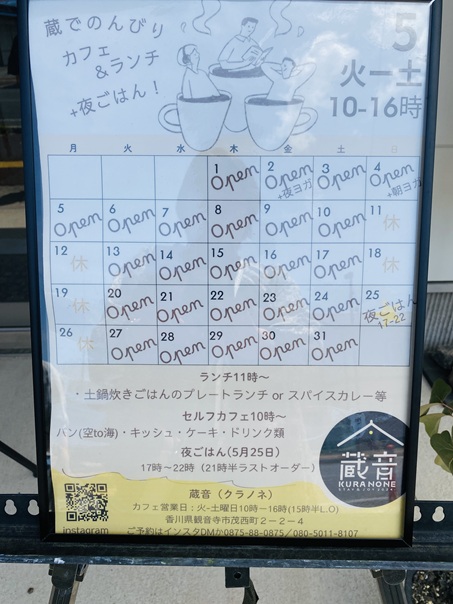 蔵でのんびり
カフェ
&ランチ
+夜ごはん!
5
火ー土
10-16時
月 火 水 木 金 土 日
1 Open 2 Open +夜ヨガ 3 Open 4 Open +朝ヨガ
5 Open 6 Open 7 Open 8 Open 9 Open 10 Open 11 休
12 休 13 Open 14 Open 15 Open 16 Open 17 Open 18 休
19 休 20 Open 21 Open 22 Open 23 Open 24 Open 25 夜ごはん 17-22
26 休 27 Open 28 Open 29 Open 30 Open 31 Open
ランチ11時〜
・土鍋炊きごはんのプレートランチ or スパイスカレー等
セルフカフェ10時〜
パン(空to海)・キッシュ・ケーキ・ドリンク類
夜ごはん(5月25日)
17時〜22時(21時半ラストオーダー)
蔵音
KURANONE
蔵音(クラノネ)
カフェ営業日:火-土曜日10時ー16時(15時半L.O)
香川県観音寺市茂西町2ー2ー4
ご予約はインスタDMか0875-88-0875/080-5011-8107
instagram